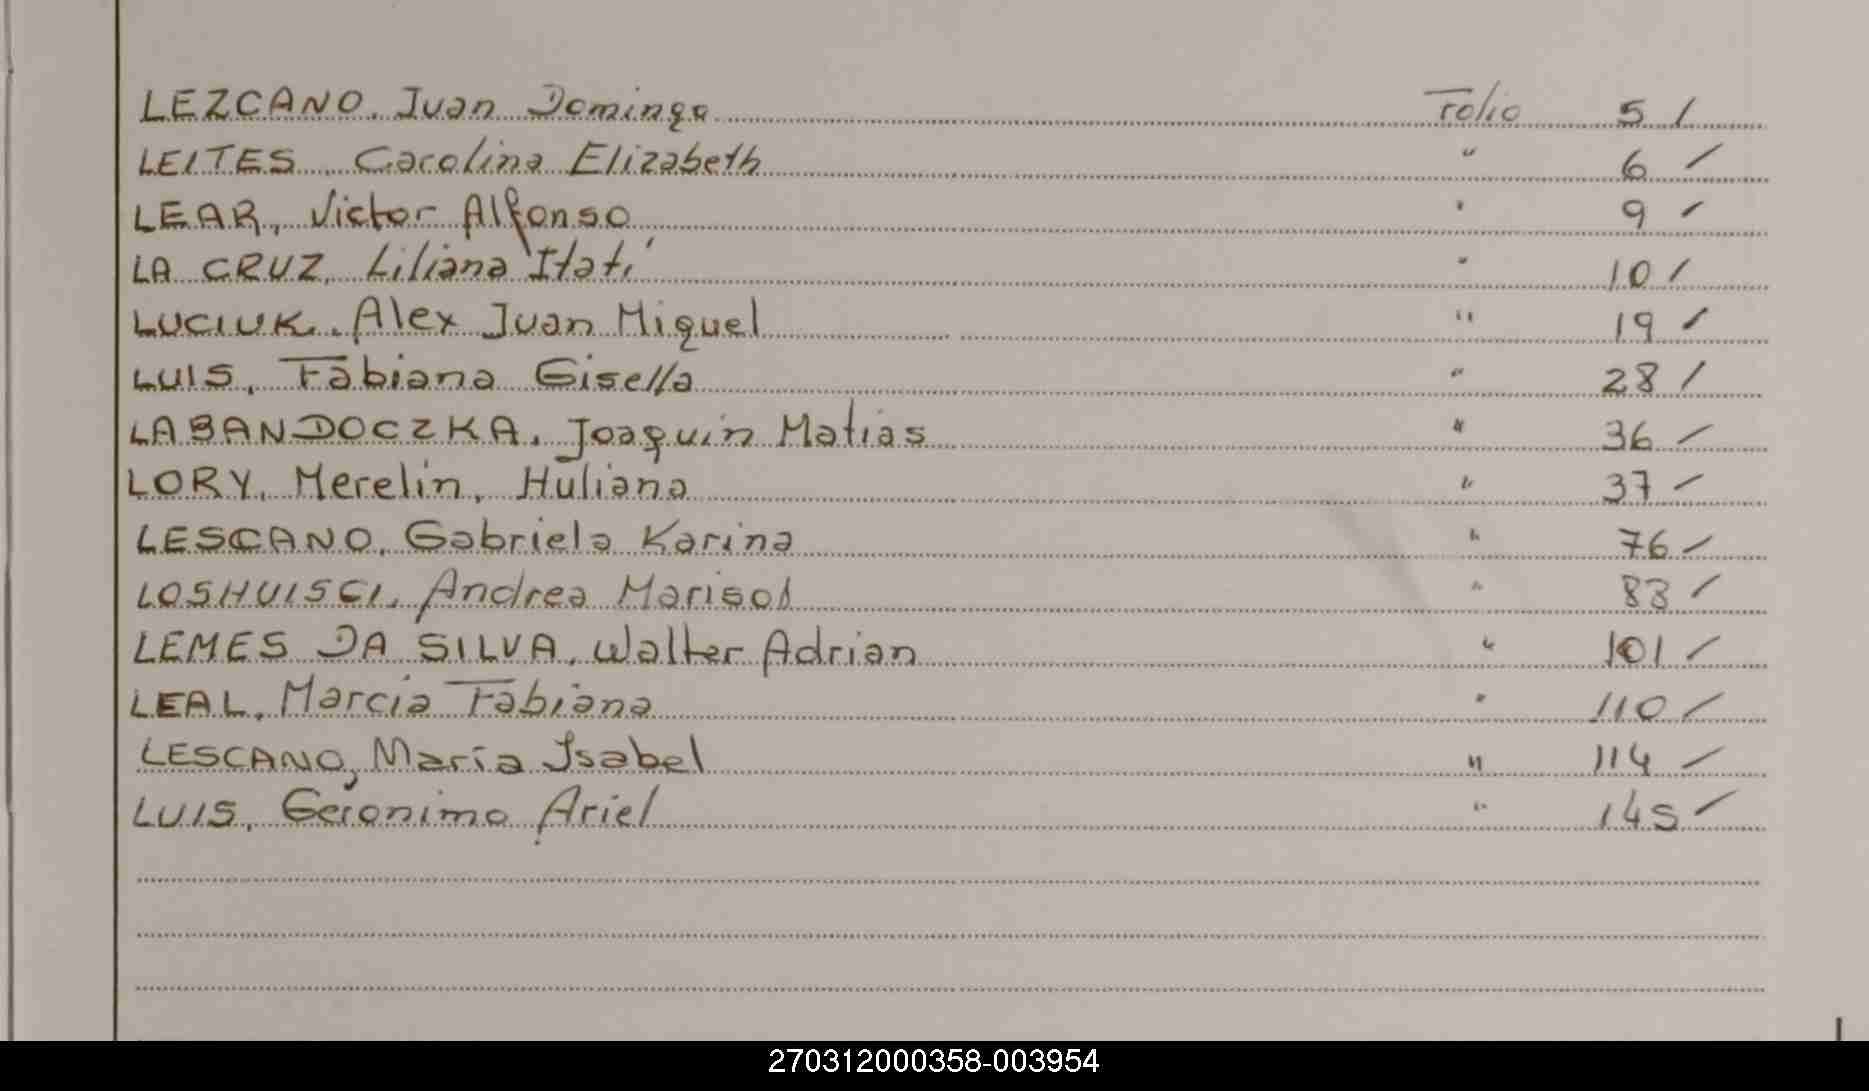 LEZCANO, Juan Domingo Folio 5 /
LEITES, Carolina Elizabeth " 6 /
LEAR, Victor Alfonso " 9 /
LA CRUZ, Liliana Itatí " 10 /
LUCIUK, Alex Juan Miguel " 19 /
LUIS, Fabiana Gisella " 28 /
LABANDOCZKA, Joaquin Matias " 36 /
LORY, Merelin, Huliana " 37 /
LESCANO, Gabriela Karina " 76 /
LOSHUISCI, Andrea Marisol " 83 /
LEMES DA SILVA, Walter Adrian " 101 /
LEAL, Marcia Fabiana " 110 /
LESCANO, María Isabel " 114 /
LUIS, Geronimo Ariel " 145 /
270312000358-003954